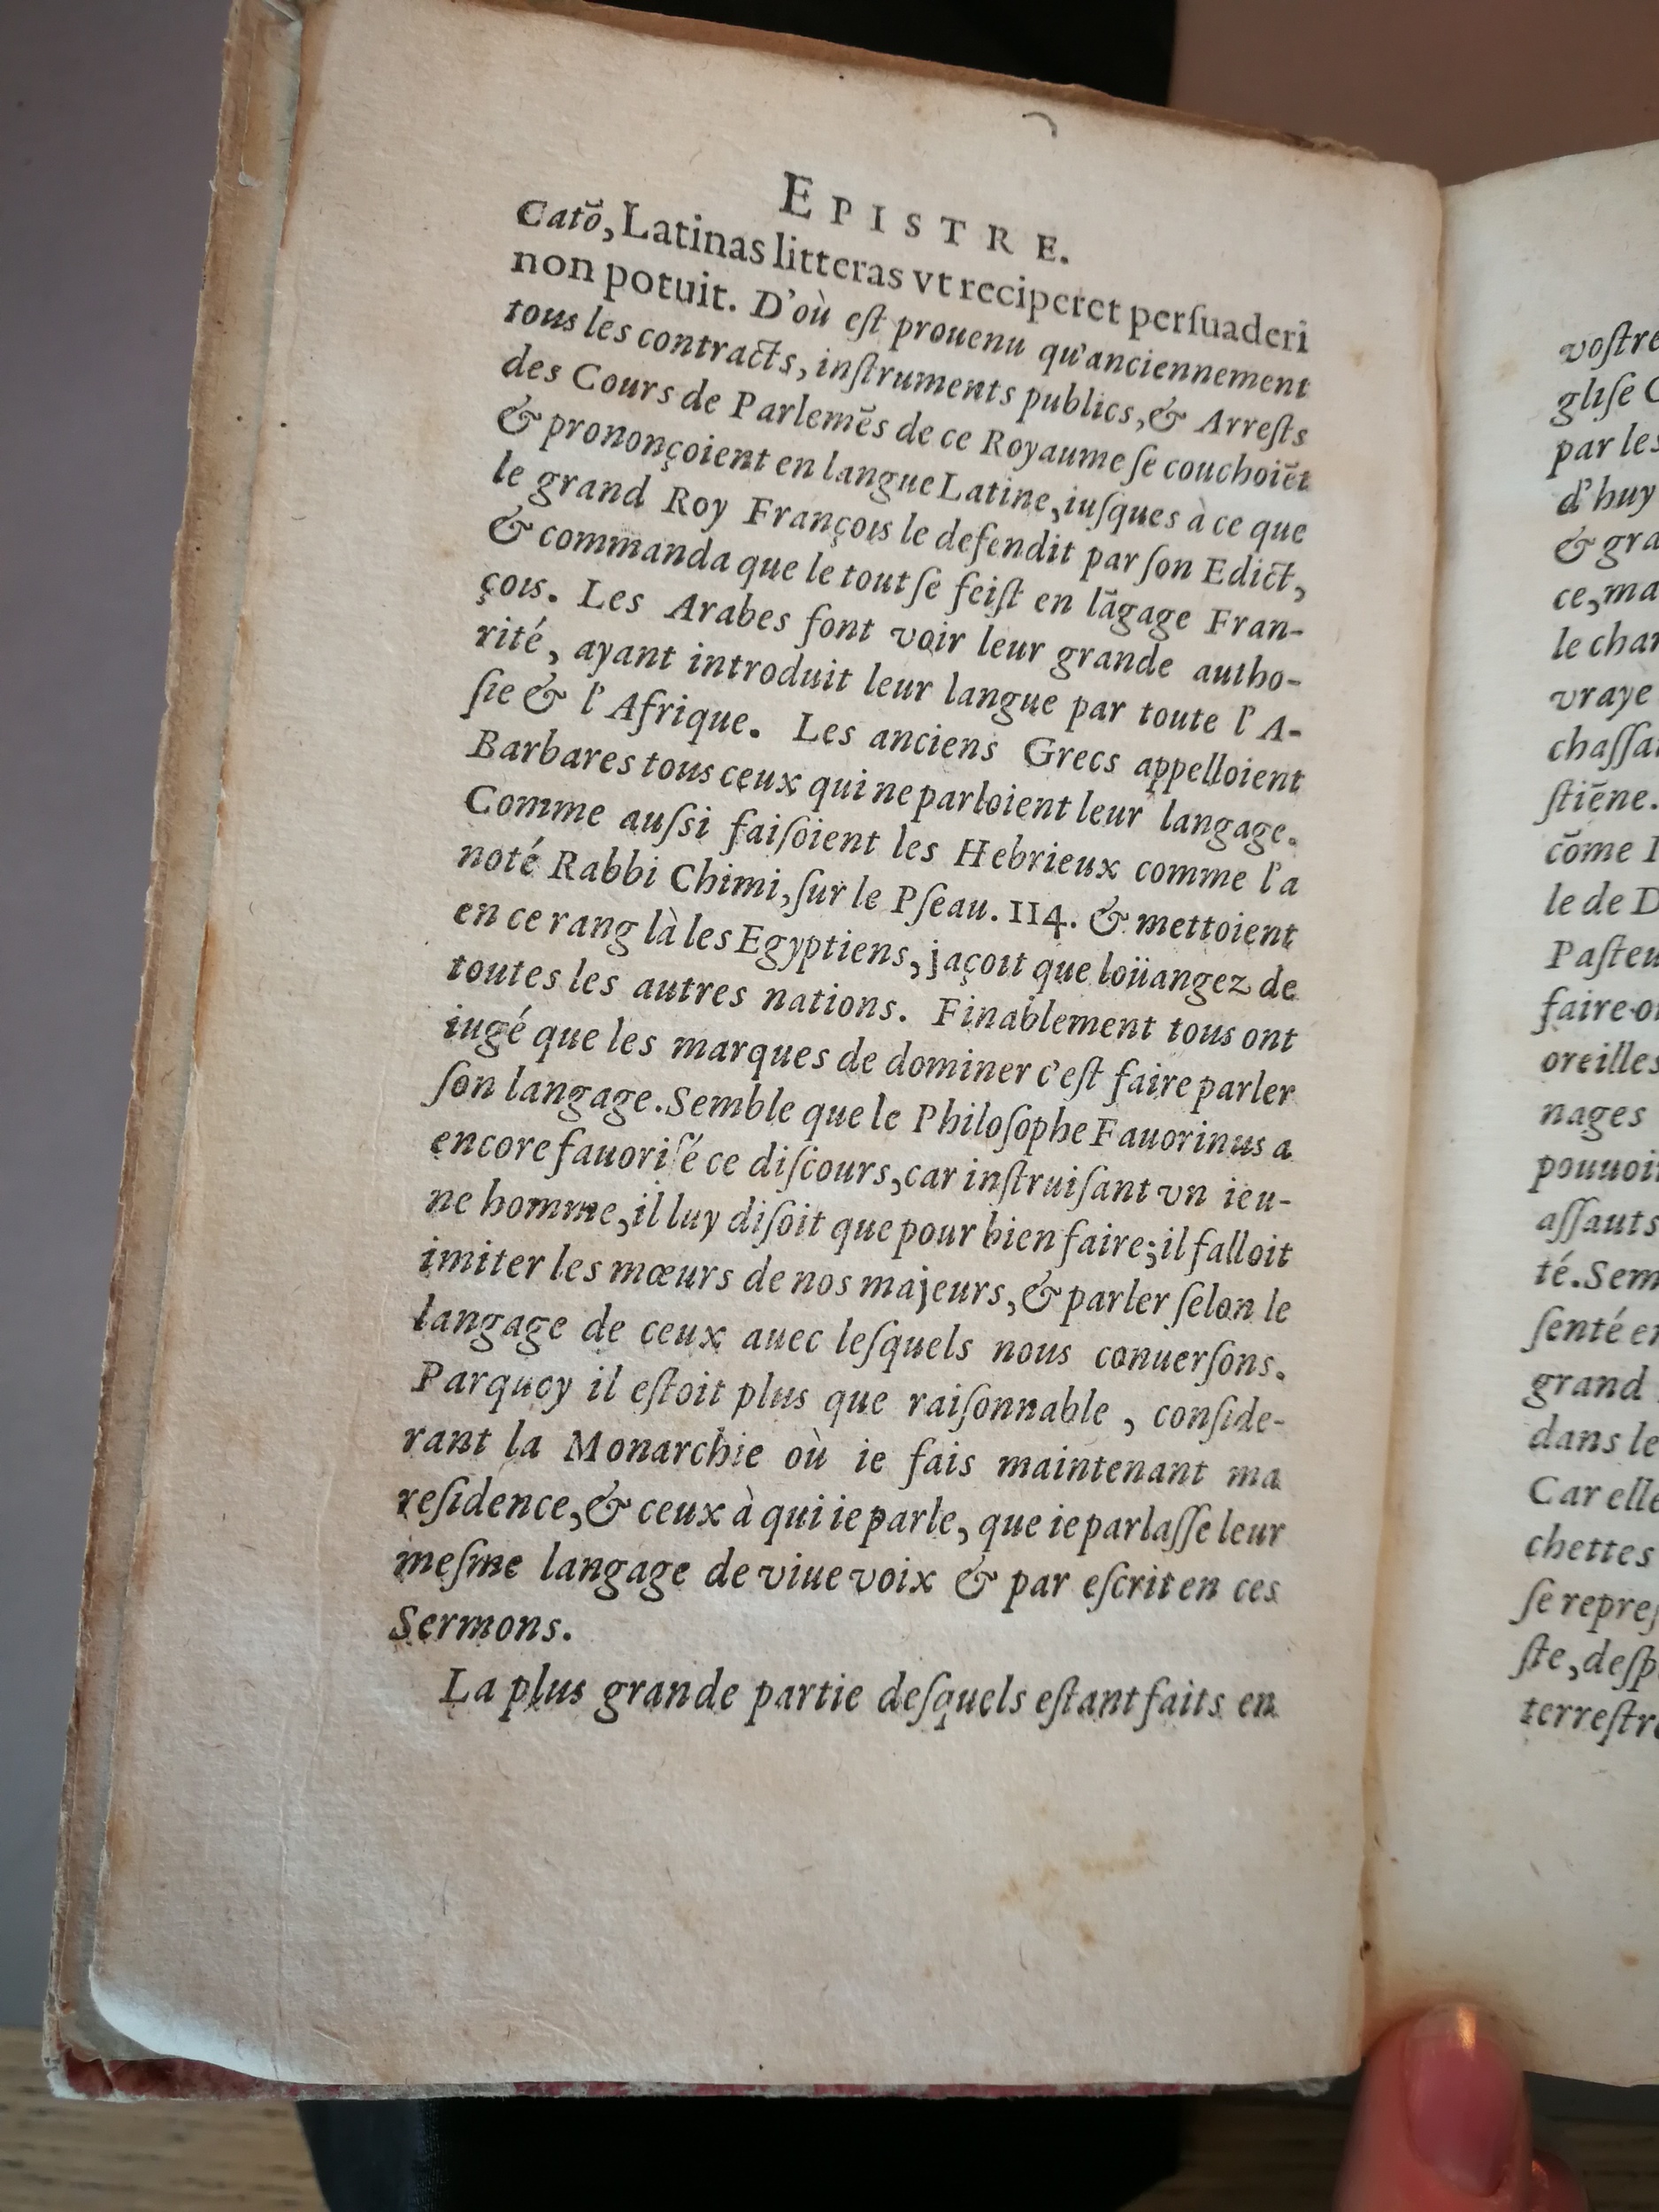 EPISTRE.
Catõ, Latinas litteras vt reciperet perſuaderi
non potuit. D'où eſt prouenu qu'anciennement
tous les contracts, inſtruments publics, & Arreſts
des Cours de Parlemẽs de ce Royaume ſe couchoiẽt
& prononçoient en langue Latine, iuſques à ce que
le grand Roy François le defendit par ſon Edict,
& commanda que le tout ſe feiſt en lãgage Fran-
çois. Les Arabes font voir leur grande autho-
rité, ayant introduit leur langue par toute l'A-
ſie & l'Afrique. Les anciens Grecs appelloient
Barbares tous ceux qui ne parloient leur langage.
Comme auſsi faiſoient les Hebrieux comme l'a
noté Rabbi Chimi, ſur le Pſeau. 114. & mettoient
en ce rang là les Egyptiens, jaçoit que loüangez de
toutes les autres nations. Finablement tous ont
iugé que les marques de dominer c'eſt faire parler
ſon langage. Semble que le Philoſophe Fauorinus a
encore fauoriſé ce diſcours, car inſtruiſant vn ieu-
ne homme, il luy diſoit que pour bien faire; il falloit
imiter les mœurs de nos majeurs, & parler ſelon le
langage de ceux auec leſquels nous conuerſons.
Parquoy il eſtoit plus que raiſonnable, conſide-
rant la Monarchie où ie fais maintenant ma
reſidence, & ceux à qui ie parle, que ie parlaſſe leur
meſme langage de viue voix & par eſcrit en ces
Sermons.
La plus grande partie deſquels eſtant faits en
voſtre
gliſe
par les
d'huy
& gra
ce, ma
le char
vraye
chaſſa
ſtiẽne.
cõme
le de D
Paſteu
faire o
oreilles
nages
pouuoi
aſſauts
té. Sem
ſenté e
grand
dans le
Car elle
chettes
ſe repreſ
ſte, deſp
terreſtre